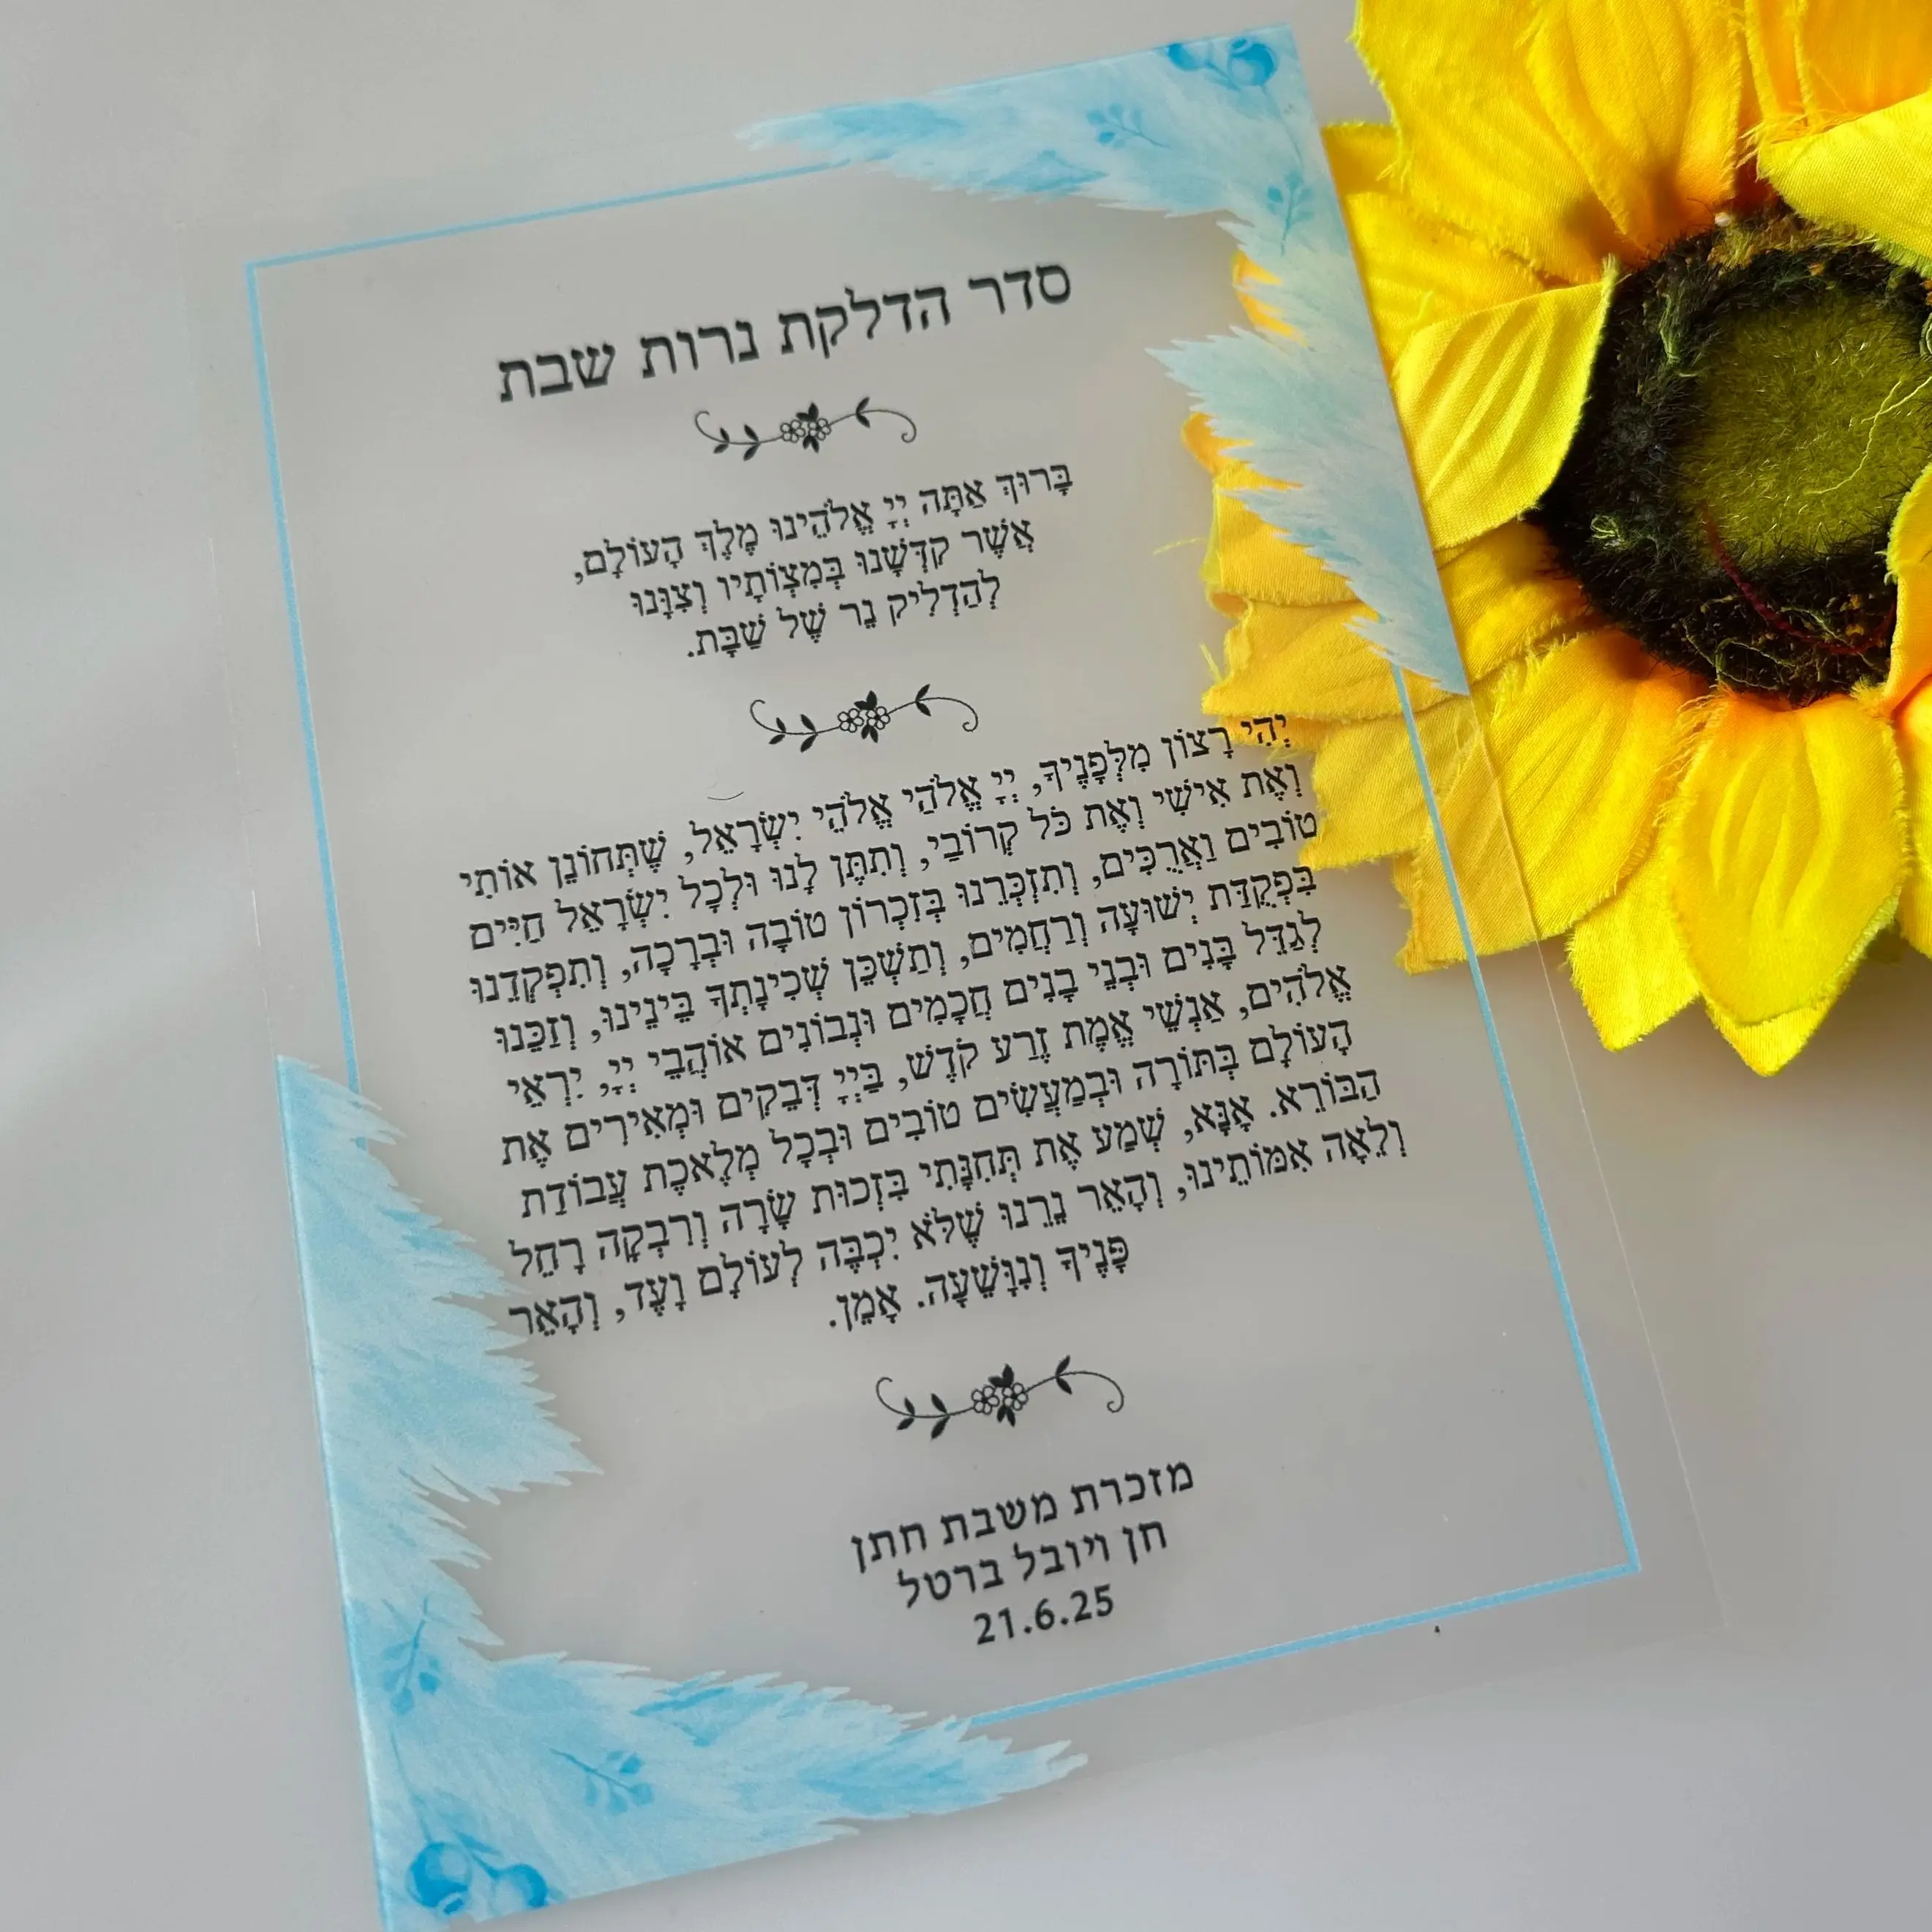 סדר הדלקת נרות שבת
בָּרוּךְ אַתָּה יְיָ אֱלֹהֵינוּ מֶלֶךְ הָעוֹלָם,
אֲשֶׁר קִדְּשָׁנוּ בְּמִצְוֹתָיו וְצִוָּנוּ
לְהַדְלִיק נֵר שֶׁל שַׁבָּת.
יְהִי רָצוֹן מִלְּפָנֶיךָ, יְיָ אֱלֹהַי אֱלֹהֵי יִשְׂרָאֵל, שֶׁתְּחוֹנֵן אוֹתִי
וְאֶת אִישִׁי וְאֶת כֹּל קְרוֹבַי, וְתִתֵּן לָנוּ וּלְכָל יִשְׂרָאֵל חַיִּים
טוֹבִים וַאֲרֻכִּים, וְתִזְכְּרֵנוּ בְּזִכְרוֹן טוֹבָה וּבְרָכָה, וְתִפְקְדֵנוּ
בִּפְקֻדַּת יְשׁוּעָה וְרַחֲמִים, וְתַשְׁכֵּן שְׁכִינָתְךָ בֵּינֵינוּ, וְזַכֵּנוּ
לְגַדֵּל בָּנִים וּבְנֵי בָנִים חֲכָמִים וּנְבוֹנִים אוֹהֲבֵי יְיָ, יִרְאֵי
אֱלֹהִים, אַנְשֵׁי אֱמֶת זֶרַע קֹדֶשׁ, בַּיְיָ דְּבֵקִים וּמְאִירִים אֶת
הָעוֹלָם בְּתּוֹרָה וּבְמַעֲשִׂים טוֹבִים וּבְכָל מְלֶאכֶת עֲבוֹדַת
הַבּוֹרֵא. אָנָּא, שְׁמַע אֶת תְּחִנָּתִי בִּזְכוּת שָׂרָה וְרִבְקָה רָחֵל
וְלֵאָה אִמּוֹתֵינוּ, וְהָאֵר נֵרֵנוּ שֶׁלֹּא יִכְבֶּה לְעוֹלָם וָעֶד, וְהָאֵר
פָּנֶיךָ וְנִוָּשֵׁעָה. אָמֵן.
מזכרת משבת חתן
חן ויובל ברטל
21.6.25